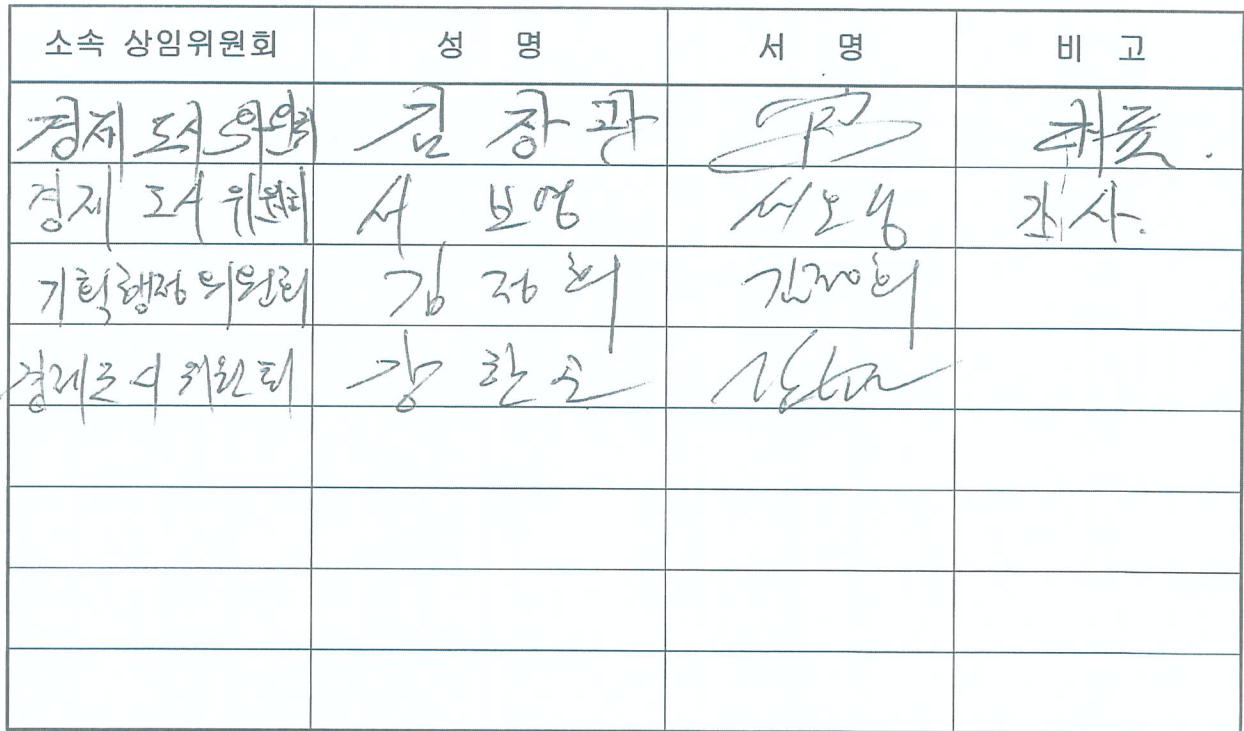 소속 상임위원회 성 명 서 명 비 고
경제도시위원회 김 장 관 대표.
경제도시위원회 서 보 영 서보영 간사.
기획행정위원회 김 정 희 김정희
경제도시위원회 강 한 소